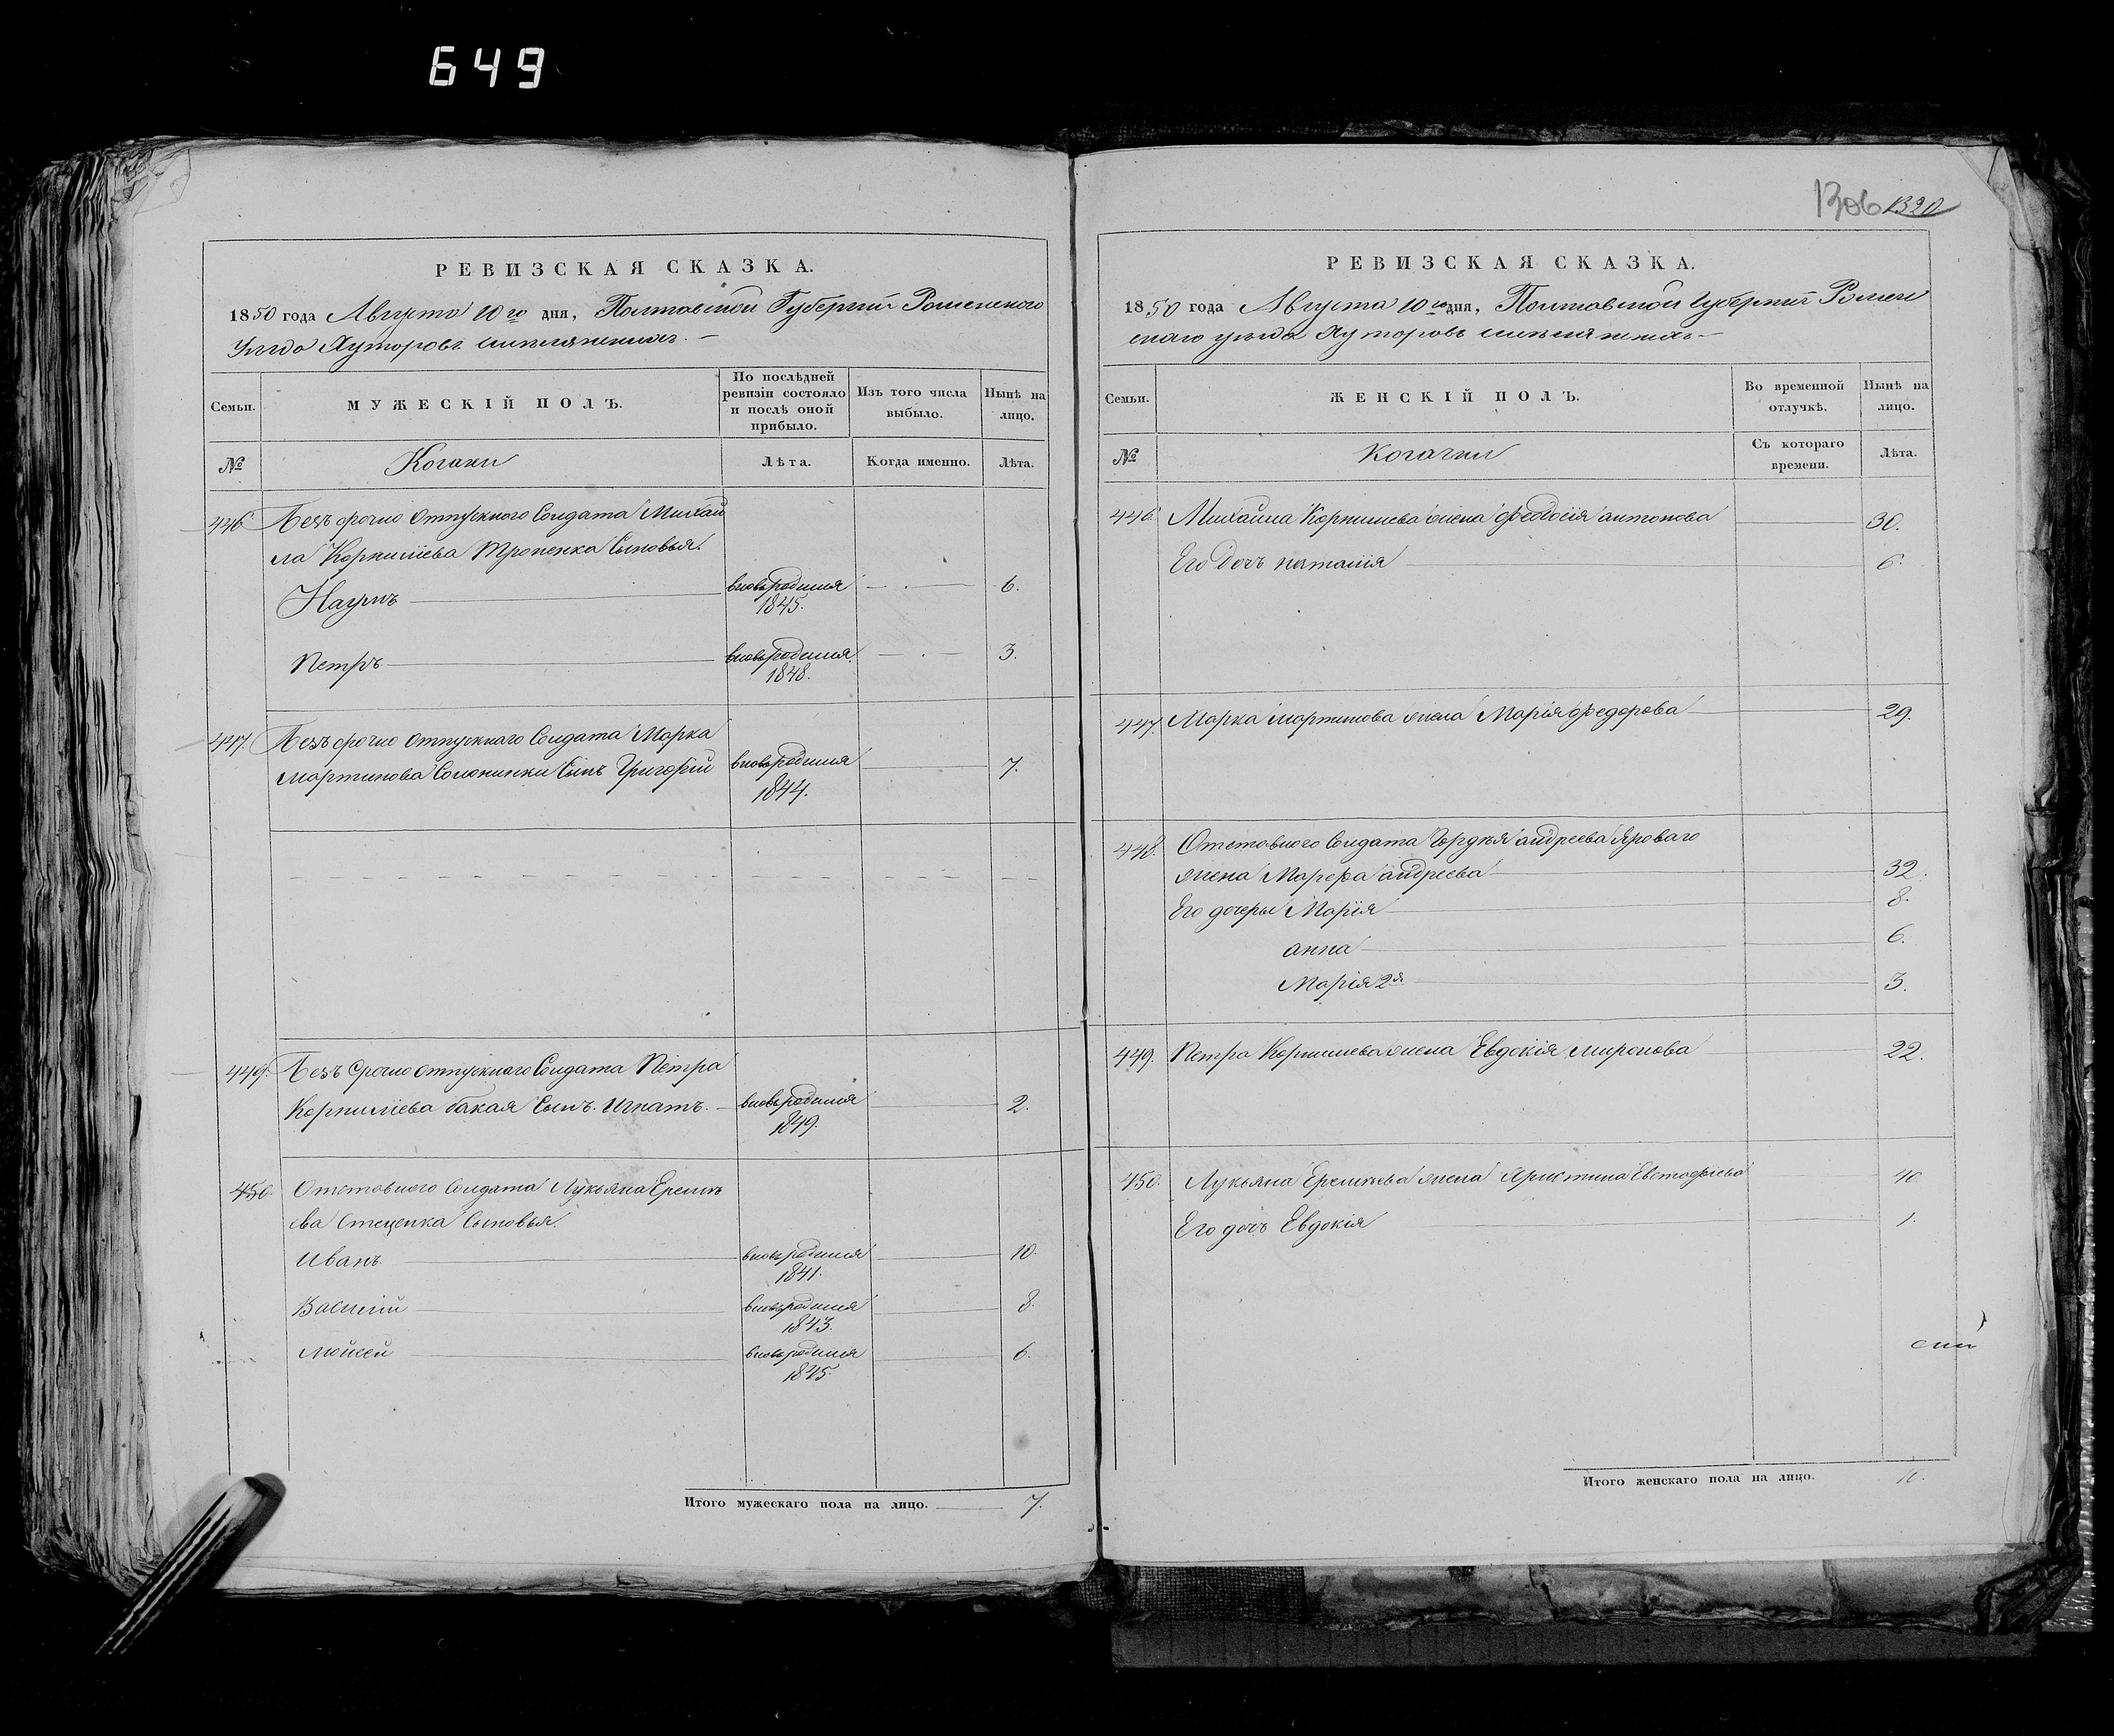 649
РЕВИЗСКАЯ СКАЗКА.
1850 года Августа 10го дня, Полтавской Губерніи Роменского
Уезда Хуторовъ
Семьи.
МУЖЕСКІЙ ПОЛЪ.
По послѣдней ревизіи состояло и послѣ оной прибыло.
Изъ того числа выбыло.
Нынѣ на лицо.
№
Козаки
Лѣта.
Когда именно.
Лѣта.
446. Безъ срочно отпускного Солдата Михаи
ла Корнилїева Тропенка Сыновья.
Наумъ вновьродился 1845. 6.
Петръ вновьродился 1848. 3.
447. Безъ срочно отпускнаго Солдата Марка
Мартинова Солонинки Сынъ Григорій вновьродился 1844. 7.
449. Безъ Срочно отпускнаго Солдата Петра
Корнилїева бакая Сынъ Игнатъ. вновьродился 1849. 2.
450. Отставного Солдата Лукьяна Еремѣ
ева Стеценка Сыновья.
Иванъ. вновьродился 1841. 10.
Василій вновьродился 1843. 8.
Мойсей вновьродился 1845. 6.
Итого мужескаго пола на лицо. 7.
1306 1320
РЕВИЗСКАЯ СКАЗКА.
1850 года Августа 10го дня, Полтавской Губерніи Ромен
скаго уезда Хуторовъ
Семьи.
ЖЕНСКІЙ ПОЛЪ.
Во временной отлучкѣ.
Нынѣ на лицо.
№
Козачки
Съ котораго времени.
Лѣта.
446. Михаила Корнилиева жена Феодосія антонова 30.
Его дочъ наталія 6.
447. Марка мартинова жена Марія Федорова 29.
448. Отставного Солдата Гордѣя андреева Яроваго
жена Марфа андреева 32.
Его дочеры Марїя 8.
анна 6.
Марія 2я 3.
449. Петра Корнилиева жена Евдокія миронова 22.
450. Лукьяна Еремѣева жена Христина Евстафіева 40.
Его дочъ Евдокія 1.
Итого женскаго пола на лицо.